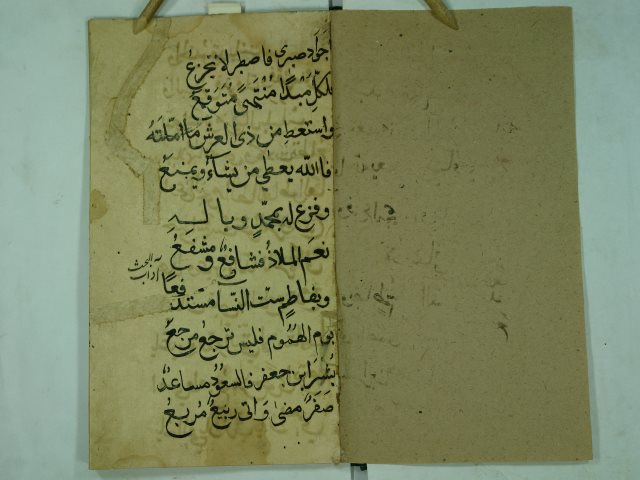 صبري فاصطبر لا تجزع
لكل مبدا منتهى متوقع
واستعطِ من ذي العرش ما املته
فاالله يعطي من يشاء ويمنع
وفزع له بمحمد وباله
نعم الملاذ فشافع ومشفع
آداب البحث
وبفاطم ست النسا مستدفعا
يوم الهموم فليس ترجع مرجع
بشر ابن جعفر فالسعود مساعد
صفر مضى واتى ربيع مربع